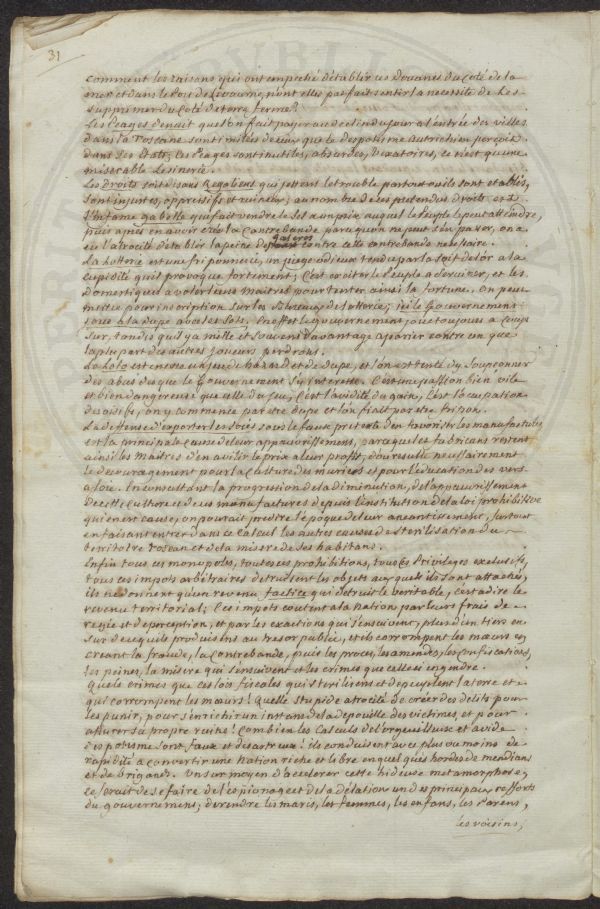 31
comment les raisons qui ont empeché d'établir ces Douanes du Coté de la
mer et dans le Port de Livourne, n'ont elles pas fait sentir la necessité de les
supprimer du Coté de terre ferme?
Les Peages denuit quel'on fait payer au declin du jour a l'entrée des villes
dans la Toscane sont imités de ceux que le despotisme autrichien perçoit
dans ses États; ces Peages sont inutiles, absurdes, Vexatoires, ce n'est qu'une
miserable Lesinerie.
Les droits soi disans Regaliens qui jettent le trouble partout ou ils sont etablis,
sont injustes, oppressifs et ruineux; au nombre de ces pretendus droits est
L'infame gabelle qui fait vendre le Sel a un prix auquel le Peuple ne peut atteindre,
puis apres en avoir créé la Contrebande parce qu'on ne peut s'en passer, on a
eu l'atrocité d'établir la peine des galeres contre cette contrebande necessaire.
La Lotterie est une friponnerie, un piege odieux tendu par la soif de l'or a la
Cupidité qu'il provoque fortement; C'est exciter le Peuple a se ruiner, et les
Domestiques a voler leurs maitres pour tenter ainsi la fortune. On peut
mettre pour inscription sur les Bureaux de Lotterie; ici le Gouvernement
joue a la dupe avec les Sots. En effet le gouvernement joue toujours a coup
sur, tandis qu'il y a mille et souvent d'avantage a parier contre un que
la plus part des autres joueurs perdront.
Le Loto est encore un jeu de hazard et de dupe, et l'on est tenté d'y soupçonner
des abus des que le Gouvernement s'y interesse. C'est une passion bien vile
et bien dangereuse que celle du jeu; C'est l'avidité du gain, C'est l'occupation
des oisifs, on y commence par etre dupe et l'on finit par etre fripon.
La deffense d'exporter les soies sous le faux pretexte d'en favoriser les manufactures
est la principale cause de leur appauvrissement, parceque les fabricans restent
ainsi les Maitres d'en avilir le prix a leur profit, d'ou resulte necessairement
le decouragement pour la Culture des muriers et pour l'éducation des vers
a soie. En consultant la progression de la diminution, de l'appauvrissement
de cette culture et de ces manufactures depuis l'institution de la loi prohibitive
qui en est cause, on pourrait predire l'époque de leur aneantissement, surtout
en faisant entrer dans ce Calcul les autres causes de sterilisation du
territoire Toscan et de la misere de ses habitans.
Enfin tous ces monopoles, toutes ces prohibitions, tous ces Privileges exclusifs,
tous ces impots arbitraires detruisent les objets auxquels ils sont attachés,
ils ne donnent qu'un revenu factice qui detruit le veritable, c'est a dire le
revenu territorial; Ces impots coutent a la nation par leurs frais de
regie et de perception, et par les exactions qui s'ensuivent, plus d'un tiers en
sus de ce qu'ils produisent au tresor public, et ils corrompent les mœurs en
creant la fraude, la Contrebande, puis les proces, les amendes, les Confiscations,
les peines, la misere qui s'ensuivent et les crimes que celle ci engendre.
Quels crimes que ces lois fiscales qui sterilisent et depeuplent la terre et
qui corrompent les mœurs! Quelle stupide atrocité de créer des délits pour
les punir, pour s'enrichir un instant de la depouille des victimes, et pour
assurer sa propre ruine! Combien les Calculs de l'orgueilleux et avide
despotisme sont faux et desastreux! ils conduisent avec plus ou moins de
rapidité a convertir une Nation riche et libre en quelques hordes de mendians
et de brigands. Un sur moyen d'accelerer cette hideuse metamorphose,
ce serait de se faire de l'espionage et de la delation un des principaux ressorts
du gouvernement; de rendre les maris, les femmes, les enfans, les Parens,
les voisins,